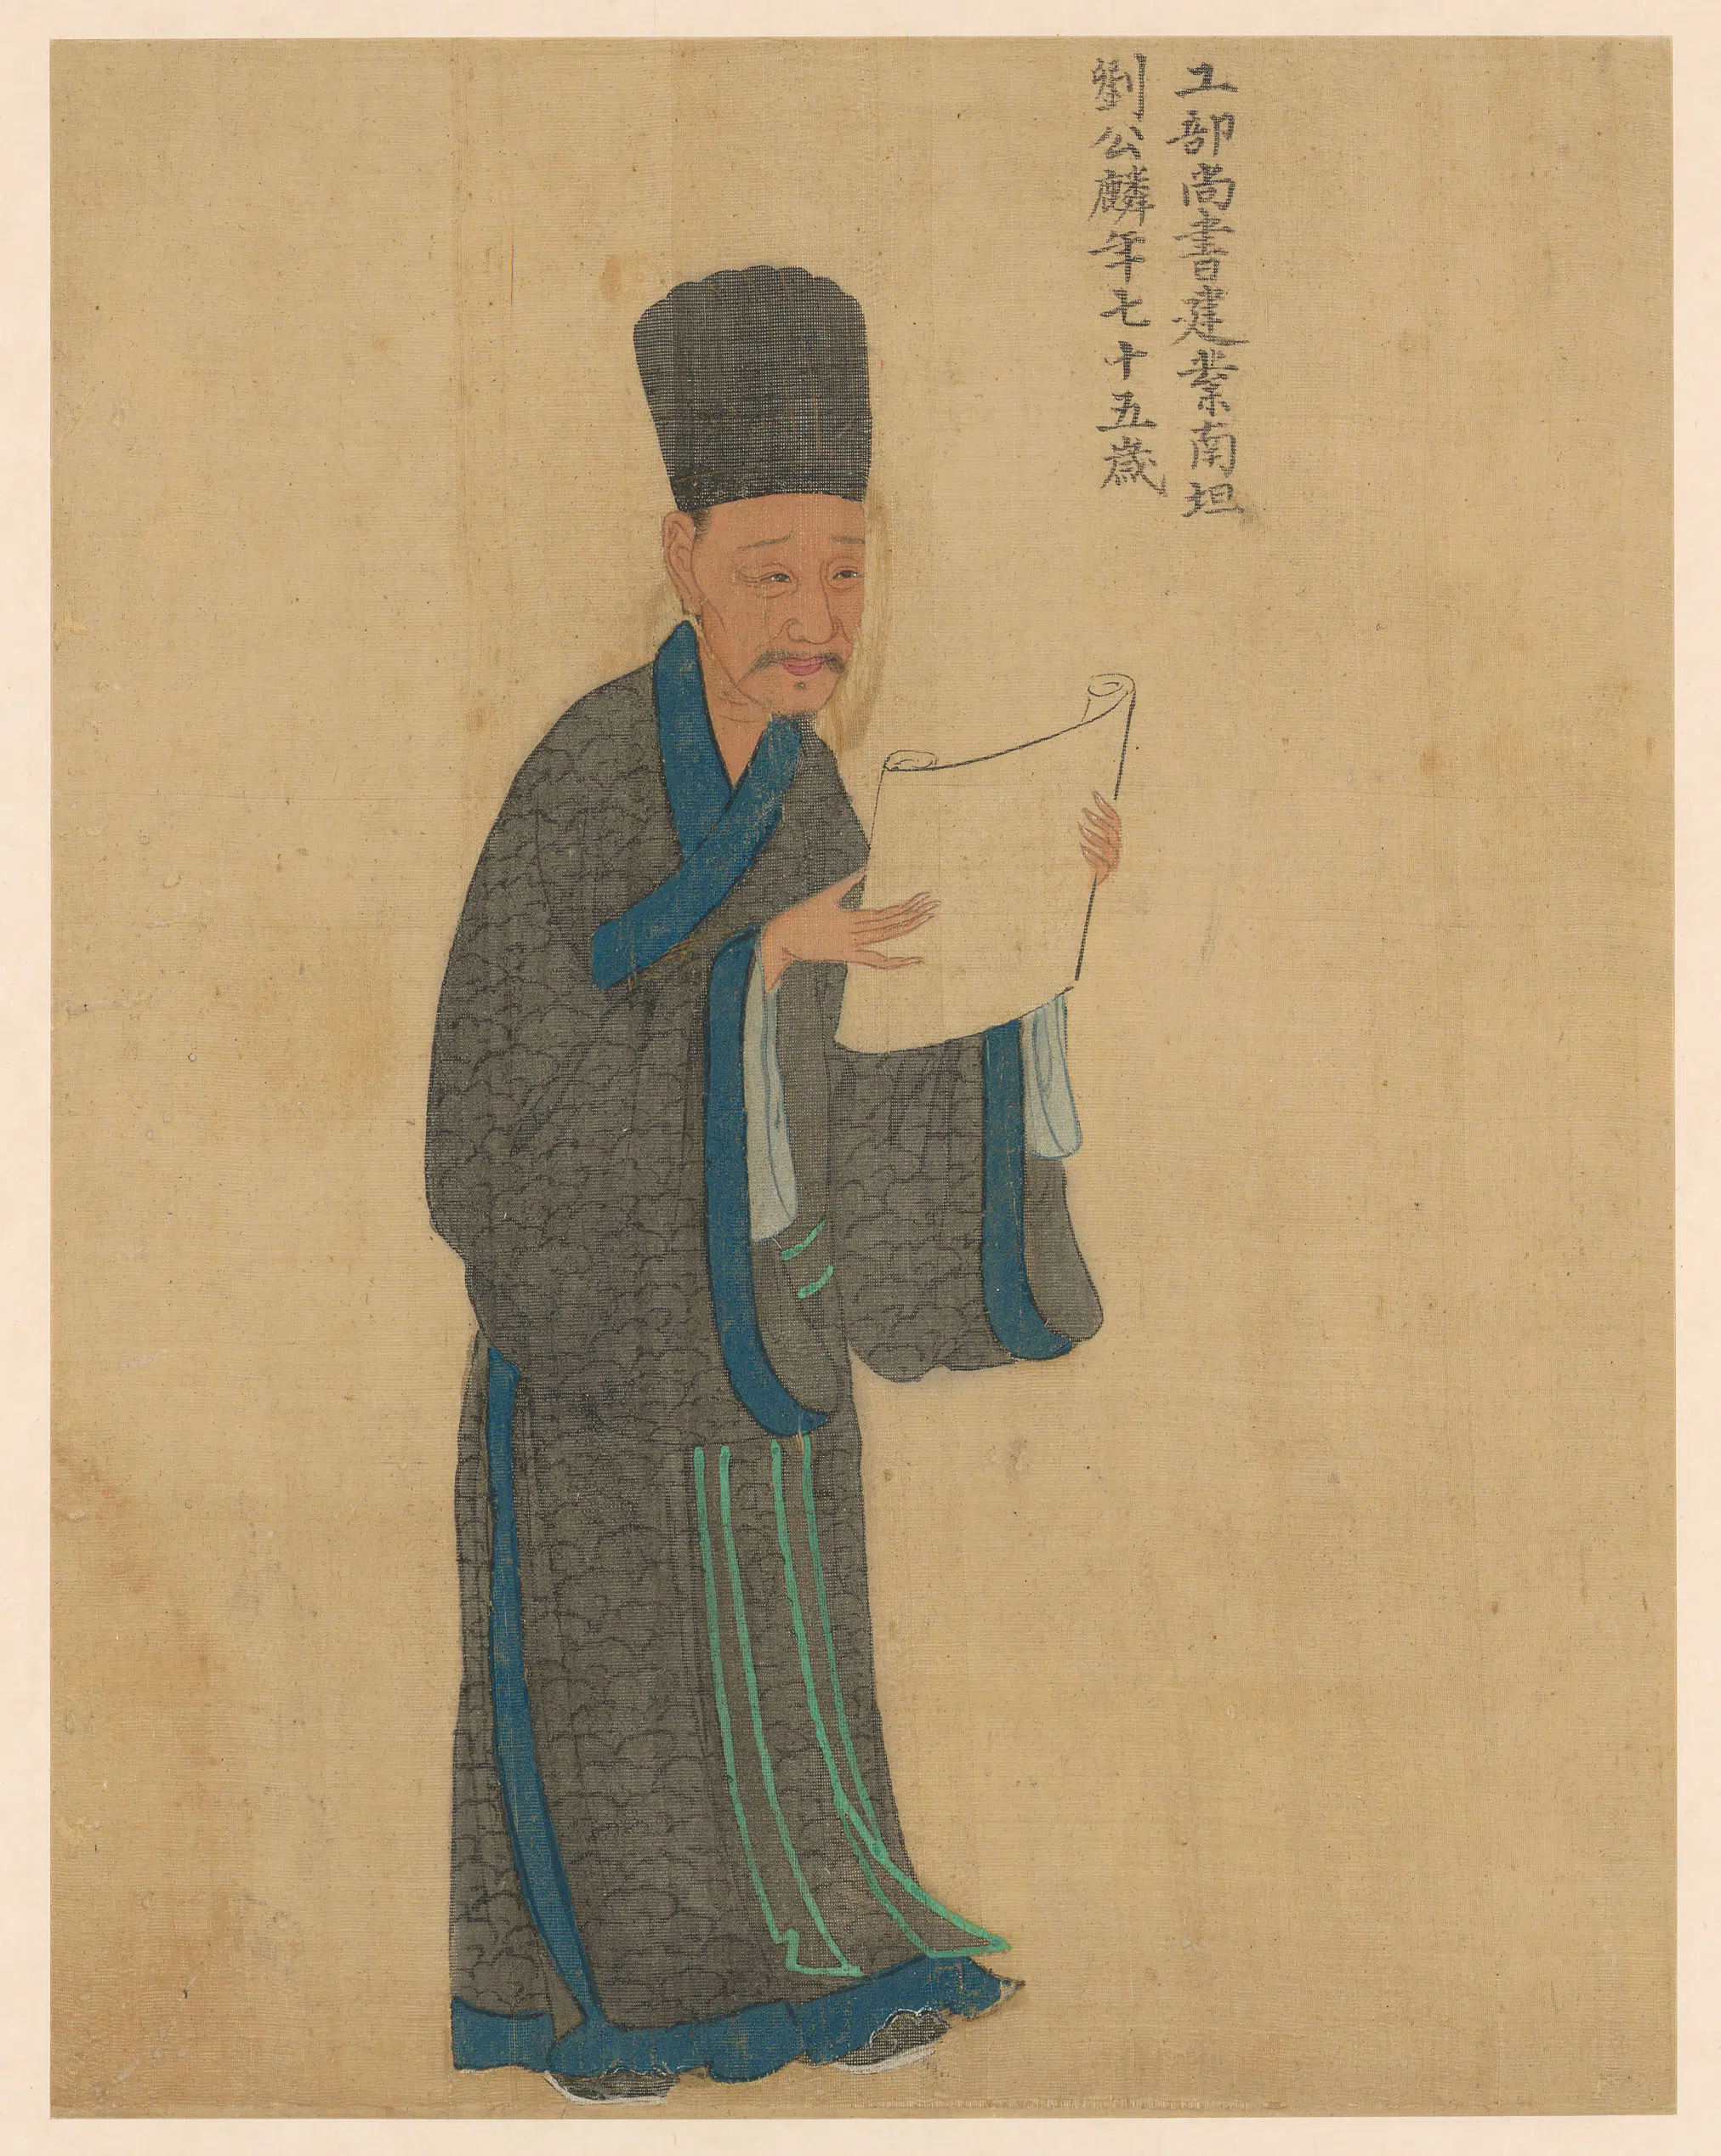 工部尚書建業南坦
劉公麟年七十五歲